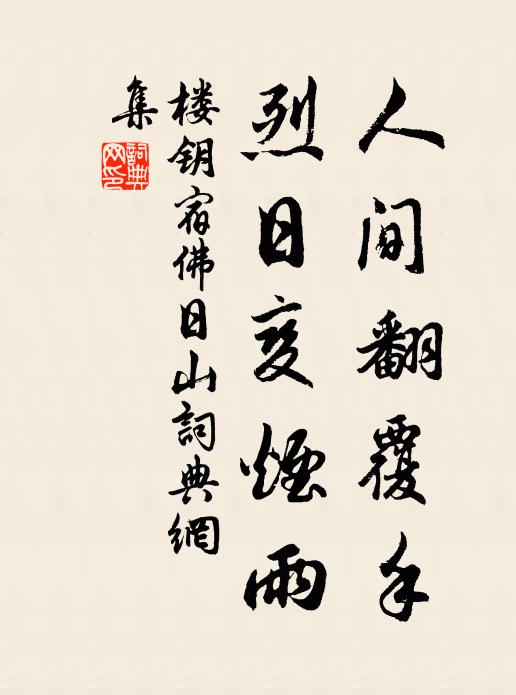 人间翻覆手
烈日变煙雨
楼钥宿佛日山詞典網
集
詞典
网印